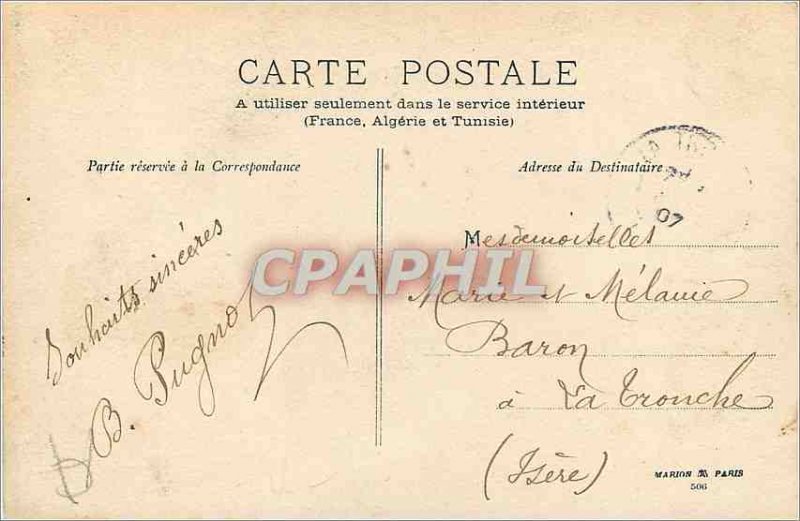 CARTE POSTALE
A utiliser seulement dans le service intérieur
(France, Algérie et Tunisie)
Partie réservée à la Correspondance
Souhaits sincères
B. Pugnot
Adresse du Destinataire
07
Mesdemoiselles
Marie et Mélanie
Baron
à La Tronche
(Isère)
MARION PARIS
506
CPAPHIL